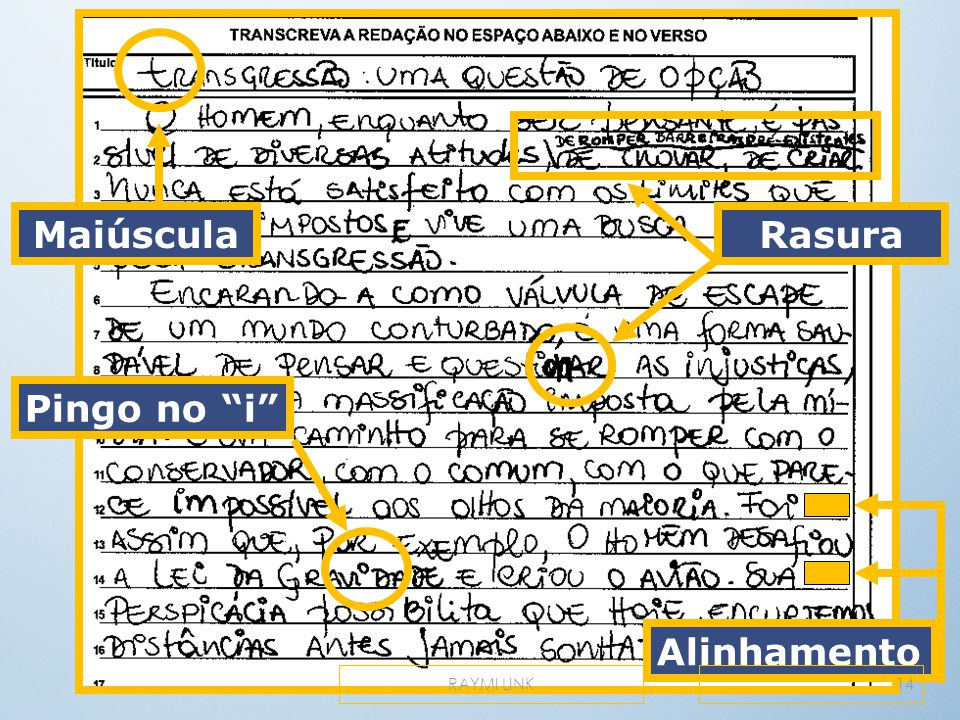 TRANSCREVA A REDAÇÃO NO ESPAÇO ABAIXO E NO VERSO
Título TRANSGRESSÃO: UMA QUESTÃO DE OPÇÃO
1 O HOMEM, ENQUANTO SER PENSANTE, É PAS
DE ROMPER BARREIRAS PRÉ-EXISTENTES
2 SÍVEL DE DIVERSAS ATITUDES, DE INOVAR, DE CRIAR
3 NUNCA ESTÁ SATISFEITO COM OS LIMITES QUE
Maiúscula
Rasura
IMPOSTOS E VIVE UMA BUSCA
5 PELA TRANSGRESSÃO.
6 ENCARANDO-A COMO VÁLVULA DE ESCAPE
7 DE UM MUNDO CONTURBADO, É UMA FORMA SAU-
8 DÁVEL DE PENSAR E QUESTIONAR AS INJUSTIÇAS,
Pingo no “i”
A MASSIFICAÇÃO IMPOSTA PELA MÍ-
CAMINHO PARA SE ROMPER COM O
11 CONSERVADOR, COM O COMUM, COM O QUE PARE-
12 CE IMPOSSÍVEL AOS OLHOS DA MAIORIA. FOI
13 ASSIM QUE, POR EXEMPLO, O HOMEM DESAFIOU
14 A LEI DA GRAVIDADE E CRIOU O AVIÃO. SUA
15 PERSPICÁCIA POSSIBILITA QUE HOJE ENCURTEM
16 DISTÂNCIAS ANTES JAMAIS
Alinhamento
17
RAYMI LINK
14